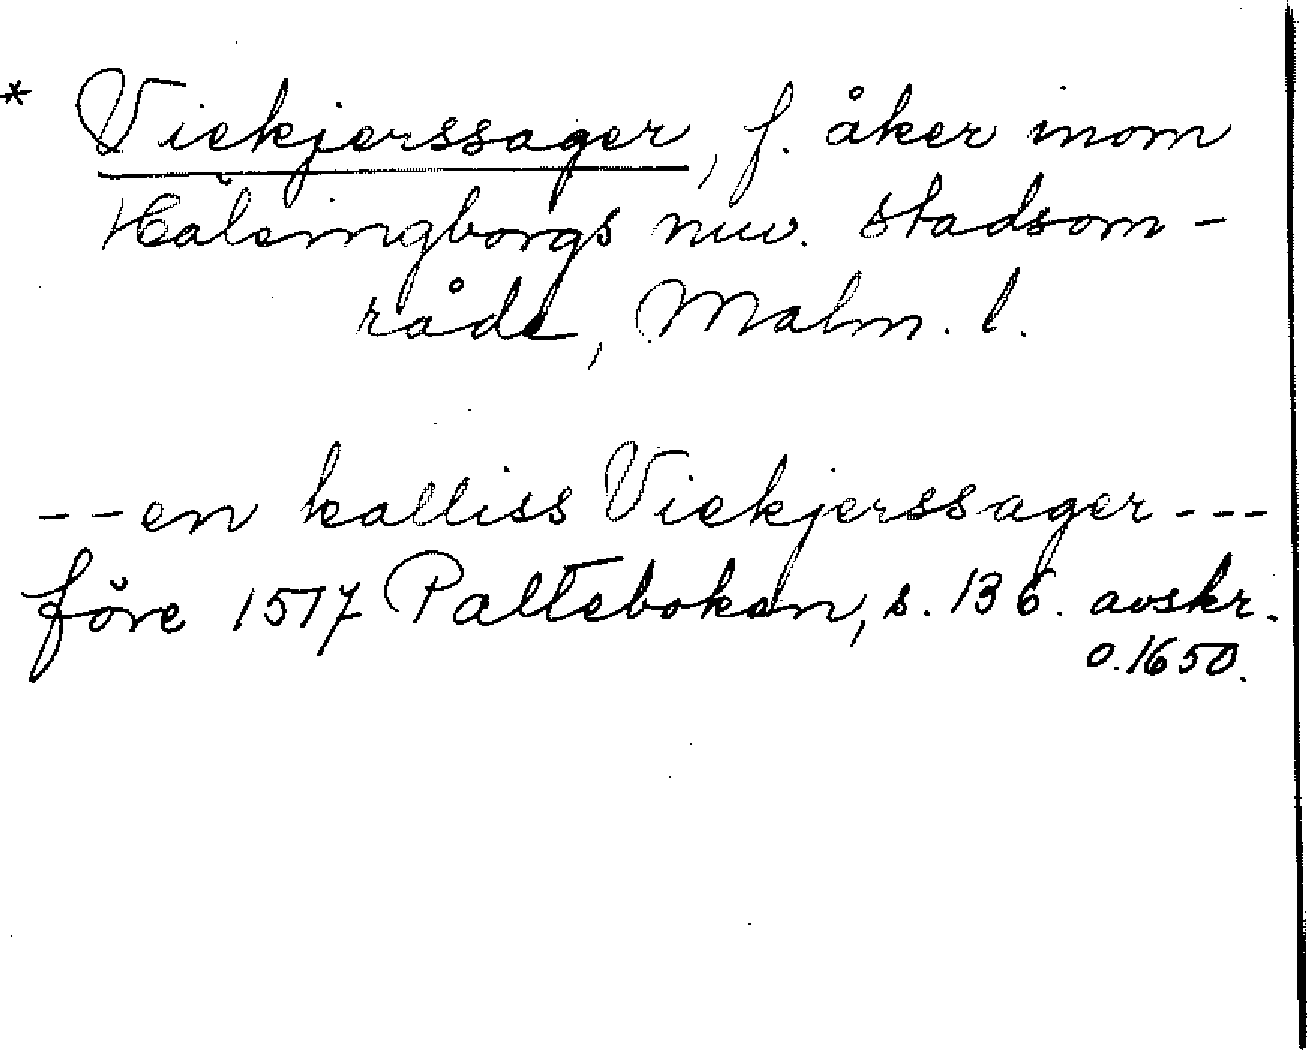 * Viekjerssager, f. åker inom
Hälsingborgs nuv. stadsom-
råde, Malm. l.
-- en kalliss Viekjerssager ---
före 1517 Palteboken, s. 136. avskr.
o. 1650.